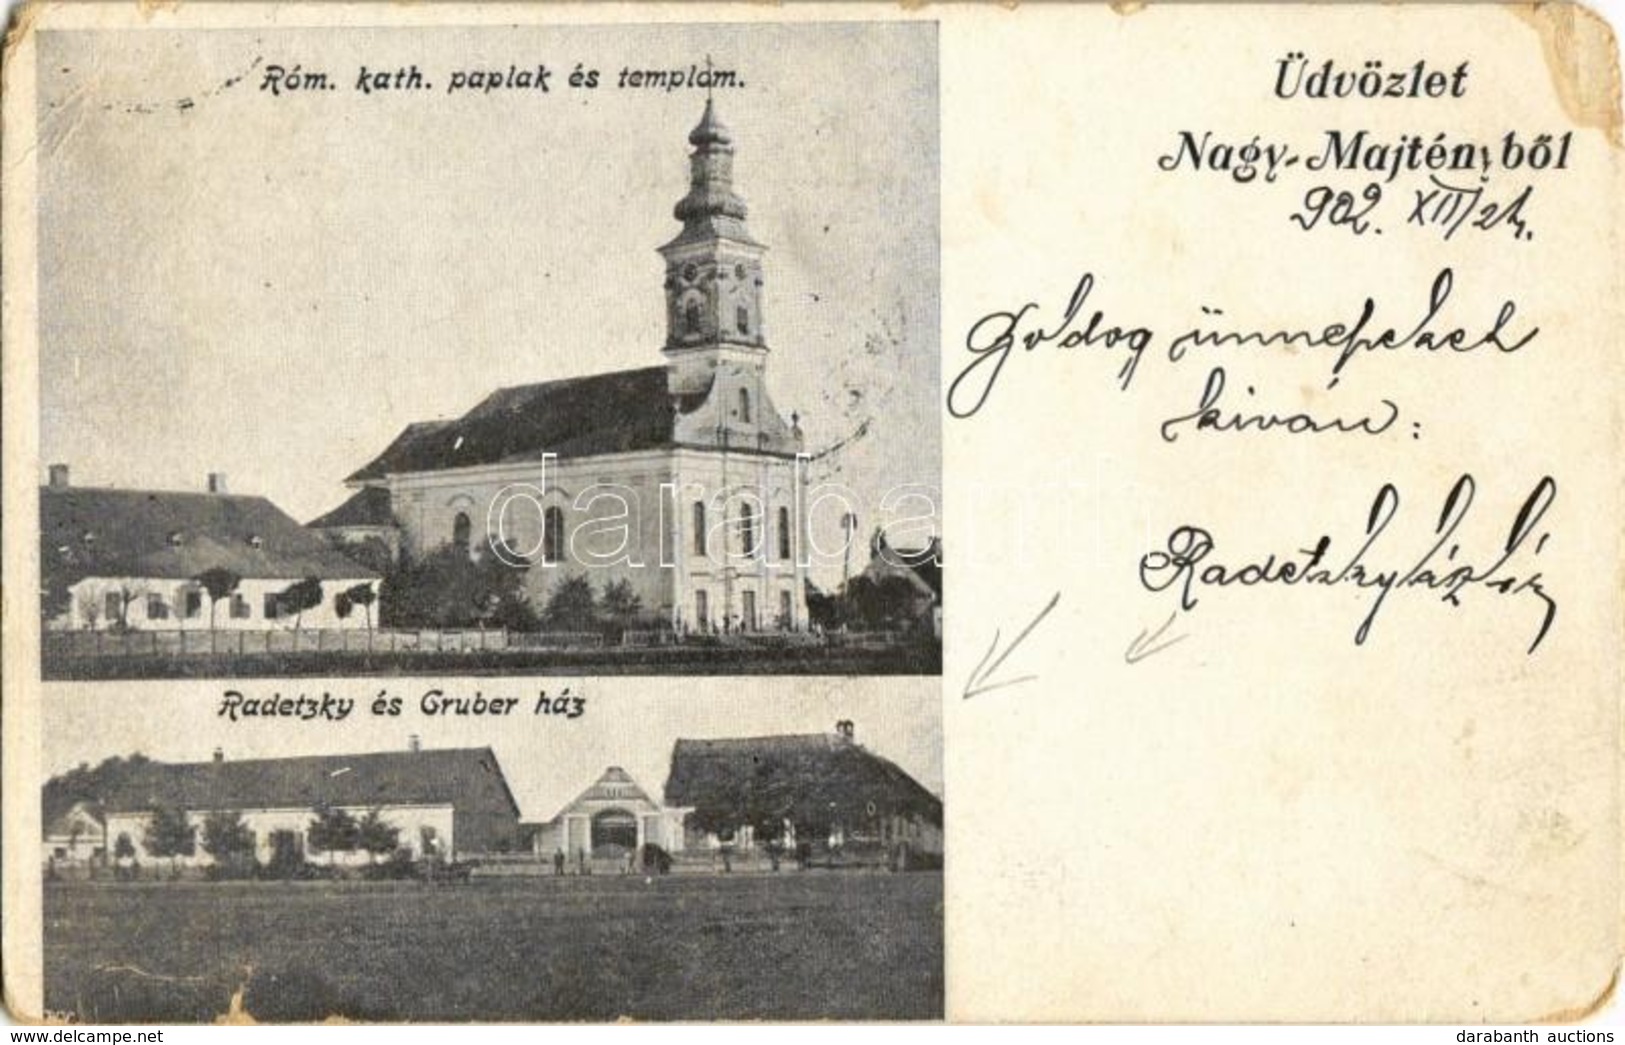 Róm. kath. paplak és templom.
Üdvözlet
Nagy-Majtényből
902. XII/24.
Goldog ünnepeket
kiván:
Radetzky László
Radetzky és Gruber ház
darabanth
www.delcampe.net
darabanth auctions